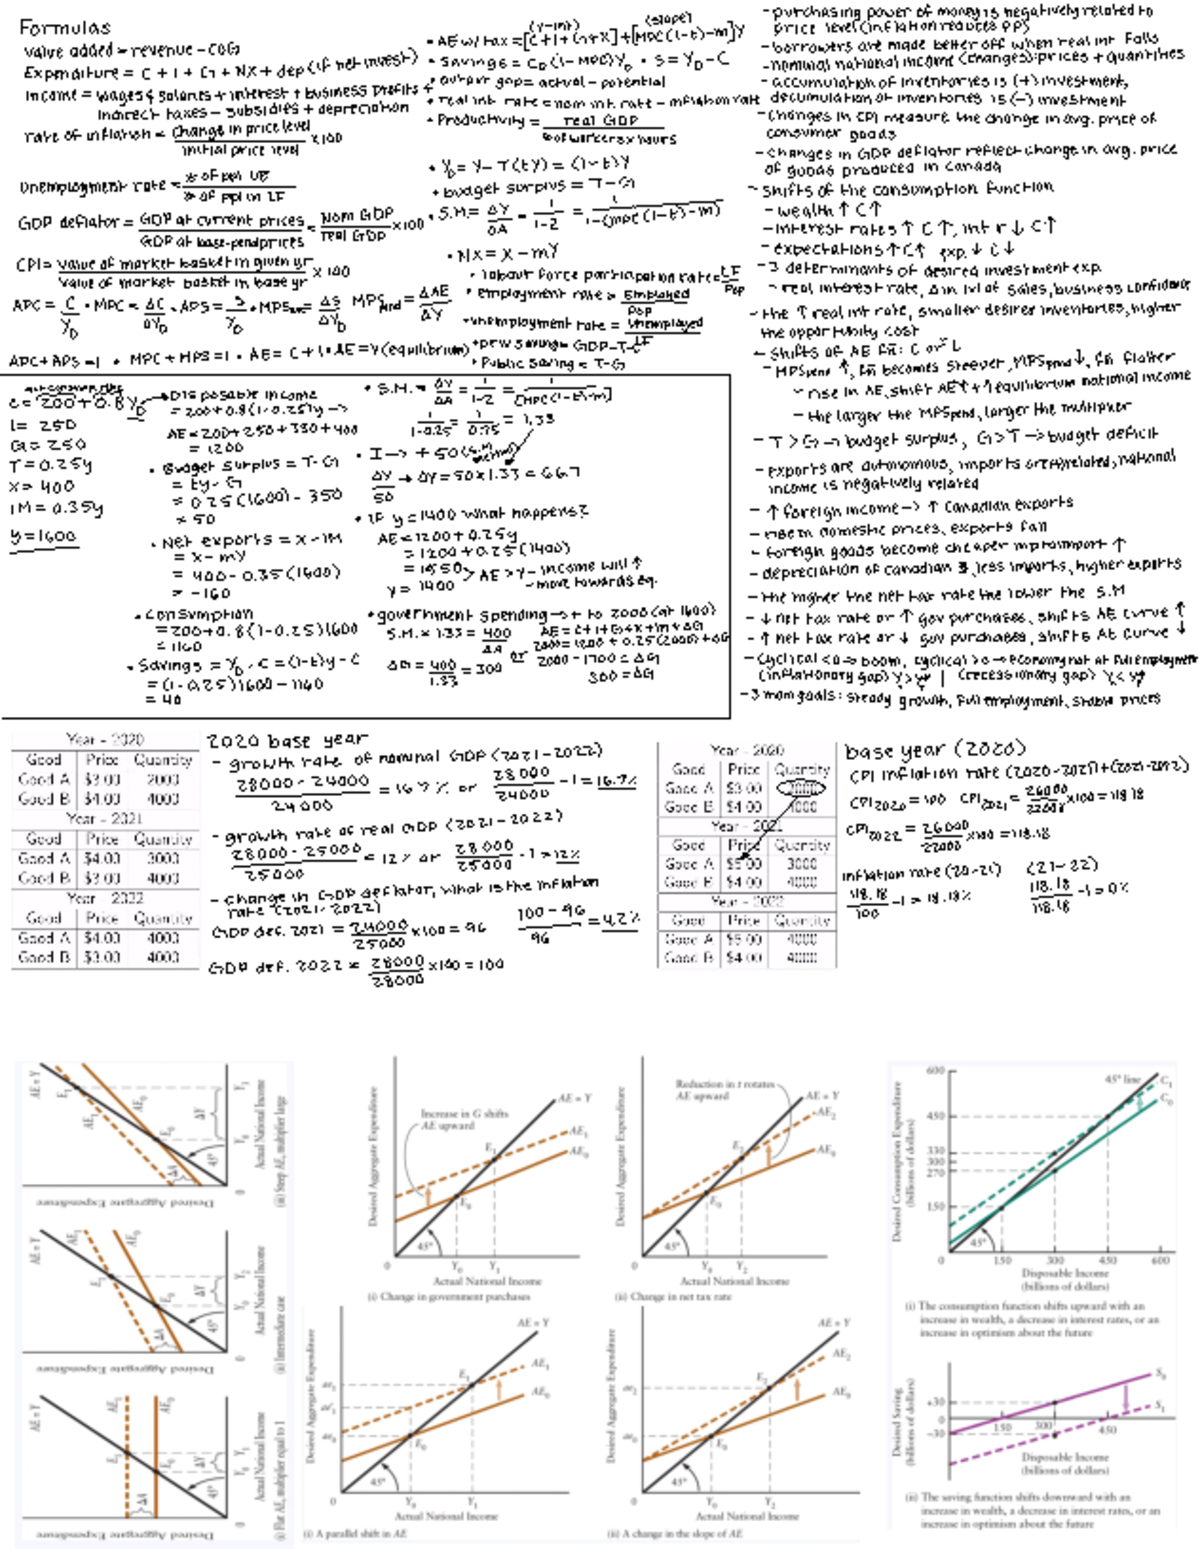 Formulas
Value added = revenue - COG
Expenditure = C + I + G + NX + dep (if net invest)
Income = wages & salaries + interest + business profits +
indirect taxes - subsidies + depreciation
rate of inflation = change in price level / initial price level x100
Unemployment rate = # of ppl UE / # of ppl in LF
GDP deflator = GDP at current prices / GDP at base-period prices = Nom GDP / real GDP x100
CPI = value of market basket in given yr / value of market basket in base yr x 100
APC = C / YD • MPC = ΔC / ΔYD • APS = S / YD • MPSave = ΔS / ΔYD MPSpend = ΔAE / ΔY
APC + APS = 1 • MPC + MPS = 1 • AE = C + I • AE = Y (equilibrium)
(y-int) (slope)
• AE w/ tax = [C + I + G + X] + [MPC(1-t) - m]Y
• Savings = (1-MPC)YD • S = YD - C
• output gap = actual - potential
• real int rate = nom int rate - inflation rate
• Productivity = real GDP / # of workers x hours
• YD = Y - T(tY) = (1-t)Y
• budget surplus = T-G
• S.M. = ΔY / ΔA = 1 / 1-z = 1 / 1-(MPC(1-t)-m)
• NX = X - mY
• labour force participation rate = LF / Pop
• employment rate = Employed / Pop
• unemployment rate = Unemployed / LF
• Public saving = T-G
- purchasing power of money is negatively related to
price level (inflation reduces pp)
- borrowers are made better off when real int falls
- nominal national income (changes): prices + quantities
- accumulation of inventories is (+) investment,
decumulation of inventories is (-) investment
- changes in CPI measure the change in avg. price of
consumer goods
- changes in GDP deflator reflect change in avg. price
of goods produced in Canada
- shifts of the consumption function
- wealth ↑ C ↑
- interest rates ↑ C ↑, int r ↓ C ↑
- expectations ↑ C ↑ exp. ↓ C ↓
- 3 determinants of desired investment exp.
- real interest rate, Δ in lvl of sales, business confidence
- the ↑ real int rate, smaller desired inventories, higher
the opportunity cost
- shifts of AE fn: C or I
- MPSpend ↑, fn becomes steeper, MPSpend ↓, fn flatter
- rise in AE, shift AE ↑ + ↑ equilibrium national income
- the larger the MPSpend, larger the multiplier
- T > G → budget surplus, G > T → budget deficit
- exports are autonomous, imports are (+) related, national
income is negatively related
- ↑ foreign income → ↑ Canadian exports
- rise in domestic prices, exports fall
- foreign goods become cheaper import ↑
- depreciation of Canadian $, less imports, higher exports
- the higher the net tax rate the lower the S.M
- ↓ net tax rate or ↑ gov purchases, shifts AE curve ↑
- ↑ net tax rate or ↓ gov purchases, shifts AE curve ↓
- Cyclical < 0 → boom, cyclical > 0 → economy not at full employment
(inflationary gap) Y > Y* | (recessionary gap) Y < Y*
- 3 main goals: steady growth, full employment, stable prices
C = 200 + 0.8YD
I = 250
G = 250
T = 0.25y
X = 400
IM = 0.35y
y = 1600
→ Disposable income
= 200 + 0.8(1-0.25)y →
AE = 200 + 250 + 350 + 400
= 1200
• Budget Surplus = T-G
= ty - G
= 0.25(1600) - 350
= 50
• Net exports = X - IM
= X - mY
= 400 - 0.35(1600)
= -160
• Consumption
= 200 + 0.8(1-0.25)1600
= 1160
• Savings = YD - C = (1-t)y - C
= (1-0.25)1600 - 1160
= 40
• S.M. = ΔY / ΔA = 1 / 1-z = 1 / 1-[MPC(1-t)-m]
1 / 1-0.25 = 1 / 0.75 = 1.33
• I → +50
ΔY / 50 → ΔY = 50 x 1.33 = 66.7
• If y = 1400 what happens?
AE = 1200 + 0.25y
= 1200 + 0.25(1400)
= 1550 > AE > y - income will ↑
y = 1400 - move towards eq.
• government spending → ↑ to 2000 (at 1600)
S.M. = 1.33 = 400 / ΔA AE = C + I + G + X + m + ΔG
or 2000 = 1200 + 0.25(2000) + ΔG
ΔG = 400 / 1.33 = 300 2000 - 1700 = ΔG
300 = ΔG
Year - 2020
Good Price Quantity
Good A $3.00 2000
Good B $4.00 4000
Year - 2021
Good Price Quantity
Good A $4.00 3000
Good B $3.00 4000
Year - 2022
Good Price Quantity
Good A $4.00 4000
Good B $3.00 4000
2020 base year
- growth rate of nominal GDP (2021-2022)
28000 - 24000 / 24000 = 16.7% or 28000 / 24000 - 1 = 16.7%
- growth rate of real GDP (2021-2022)
28000 - 25000 / 25000 = 12% or 28000 / 25000 - 1 = 12%
- change in GDP deflator, what is the inflation
rate (2021-2022)
GDP def. 2021 = 24000 / 25000 x100 = 96 100 - 96 / 96 = 4.2%
GDP def. 2022 = 28000 / 28000 x100 = 100
Year - 2020
Good Price Quantity
Good A $3.00 2000
Good B $4.00 4000
Year - 2021
Good Price Quantity
Good A $5.00 3000
Good B $4.00 4000
Year - 2022
Good Price Quantity
Good A $5.00 4000
Good B $4.00 4000
base year (2020)
CPI inflation rate (2020-2021) + (2021-2022)
CPI2020 = 100 CPI2021 = 26000 / 22000 x100 = 118.18
CPI2022 = 26000 / 22000 x100 = 118.18
inflation rate (20-21) (21-22)
118.18 / 100 - 1 = 18.18% 118.18 / 118.18 - 1 = 0%
Desired Aggregate Expenditure
AE = Y
AE1
AE0
E1
E0
ΔA
ΔY
45°
0
Y0
Y1
Actual National Income
(iii) Steep AE, multiplier large
Desired Aggregate Expenditure
AE = Y
AE1
AE0
E1
E0
ΔA
ΔY
45°
0
Y0
Y2
Actual National Income
(ii) Intermediate case
Desired Aggregate Expenditure
AE = Y
AE1
AE0
E1
E0
ΔA
ΔY
45°
0
Y0
Y1
Actual National Income
(i) Flat AE, multiplier equal to 1
Desired Aggregate Expenditure
Increase in G shifts
AE upward
AE = Y
AE1
AE0
E1
E0
45°
0
Y0
Y1
Actual National Income
(i) Change in government purchases
Desired Aggregate Expenditure
Reduction in t rotates
AE upward
AE = Y
AE2
AE0
E2
E0
45°
0
Y0
Y2
Actual National Income
(ii) Change in net tax rate
Desired Aggregate Expenditure
AE = Y
AE1
AE0
E1
E0
ae1
ae0
45°
0
Y0
Y1
Actual National Income
(i) A parallel shift in AE
Desired Aggregate Expenditure
AE = Y
AE2
AE0
E2
E0
ae2
ae0
45°
0
Y0
Y2
Actual National Income
(ii) A change in the slope of AE
Desired Consumption Expenditure
(billions of dollars)
600
450
330
300
270
150
0
45° line
C1
C0
45°
150
300
450
600
Disposable Income
(billions of dollars)
(i) The consumption function shifts upward with an
increase in wealth, a decrease in interest rates, or an
increase in optimism about the future
Desired Saving
(billions of dollars)
+30
0
-30
150
300
450
S0
S1
Disposable Income
(billions of dollars)
(ii) The saving function shifts downward with an
increase in wealth, a decrease in interest rates, or an
increase in optimism about the future